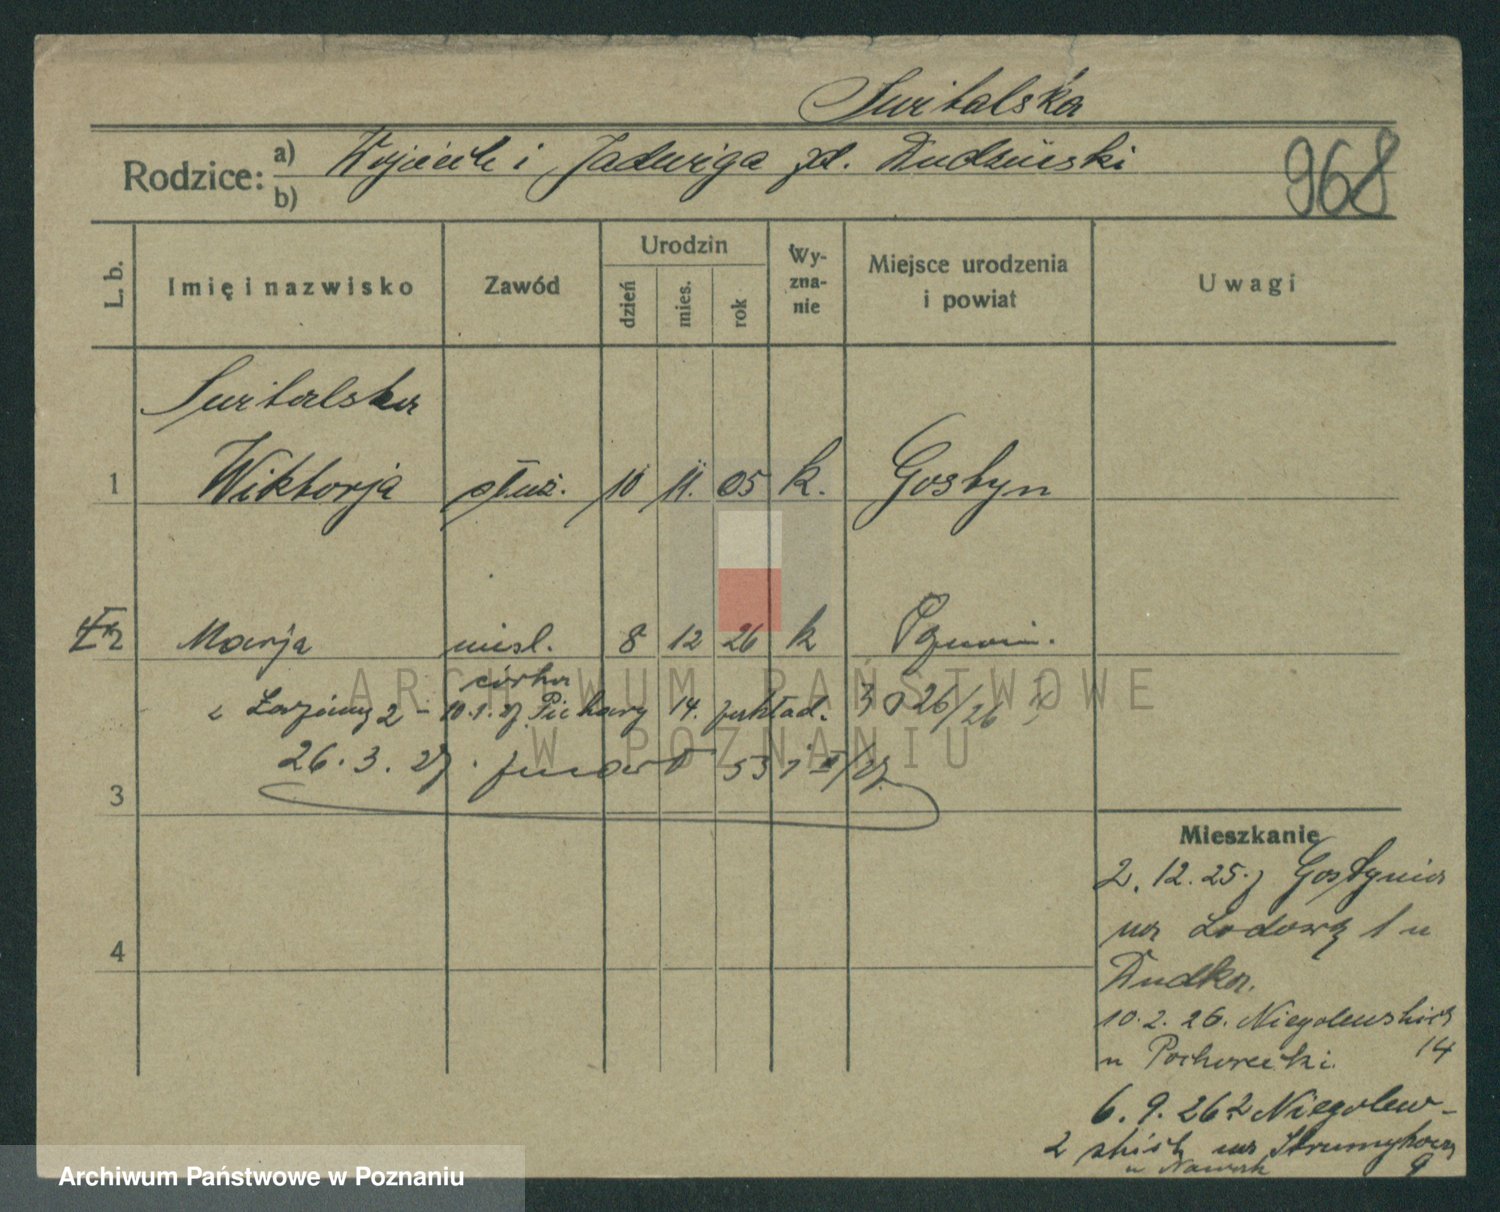 Switalska
Rodzice: a) Wojciech i Jadwiga zd. Dudziński
b)
968
L. b.
Imię i nazwisko
Zawód
Urodzin
dzień
mies.
rok
Wy-
zna-
nie
Miejsce urodzenia
i powiat
Uwagi
Switalska
1 Wiktorja służ. 10 11. 05 k. Gostyn
2 Marja nieśl. 8 12 26 k Poznań.
córka
2 - 10.1.27 14. zakład. 26/26
26.3.27. zmarł 53
3
Mieszkanie
2.12.25. z Gostynia
na 1 u
Dudka.
4
10.2.26. Niegolewskich
14
u
6.9.26 z Niegolew-
skich na Strumykową
9
ARCHIWUM PAŃSTWOWE
W POZNANIU
Archiwum Państwowe w Poznaniu